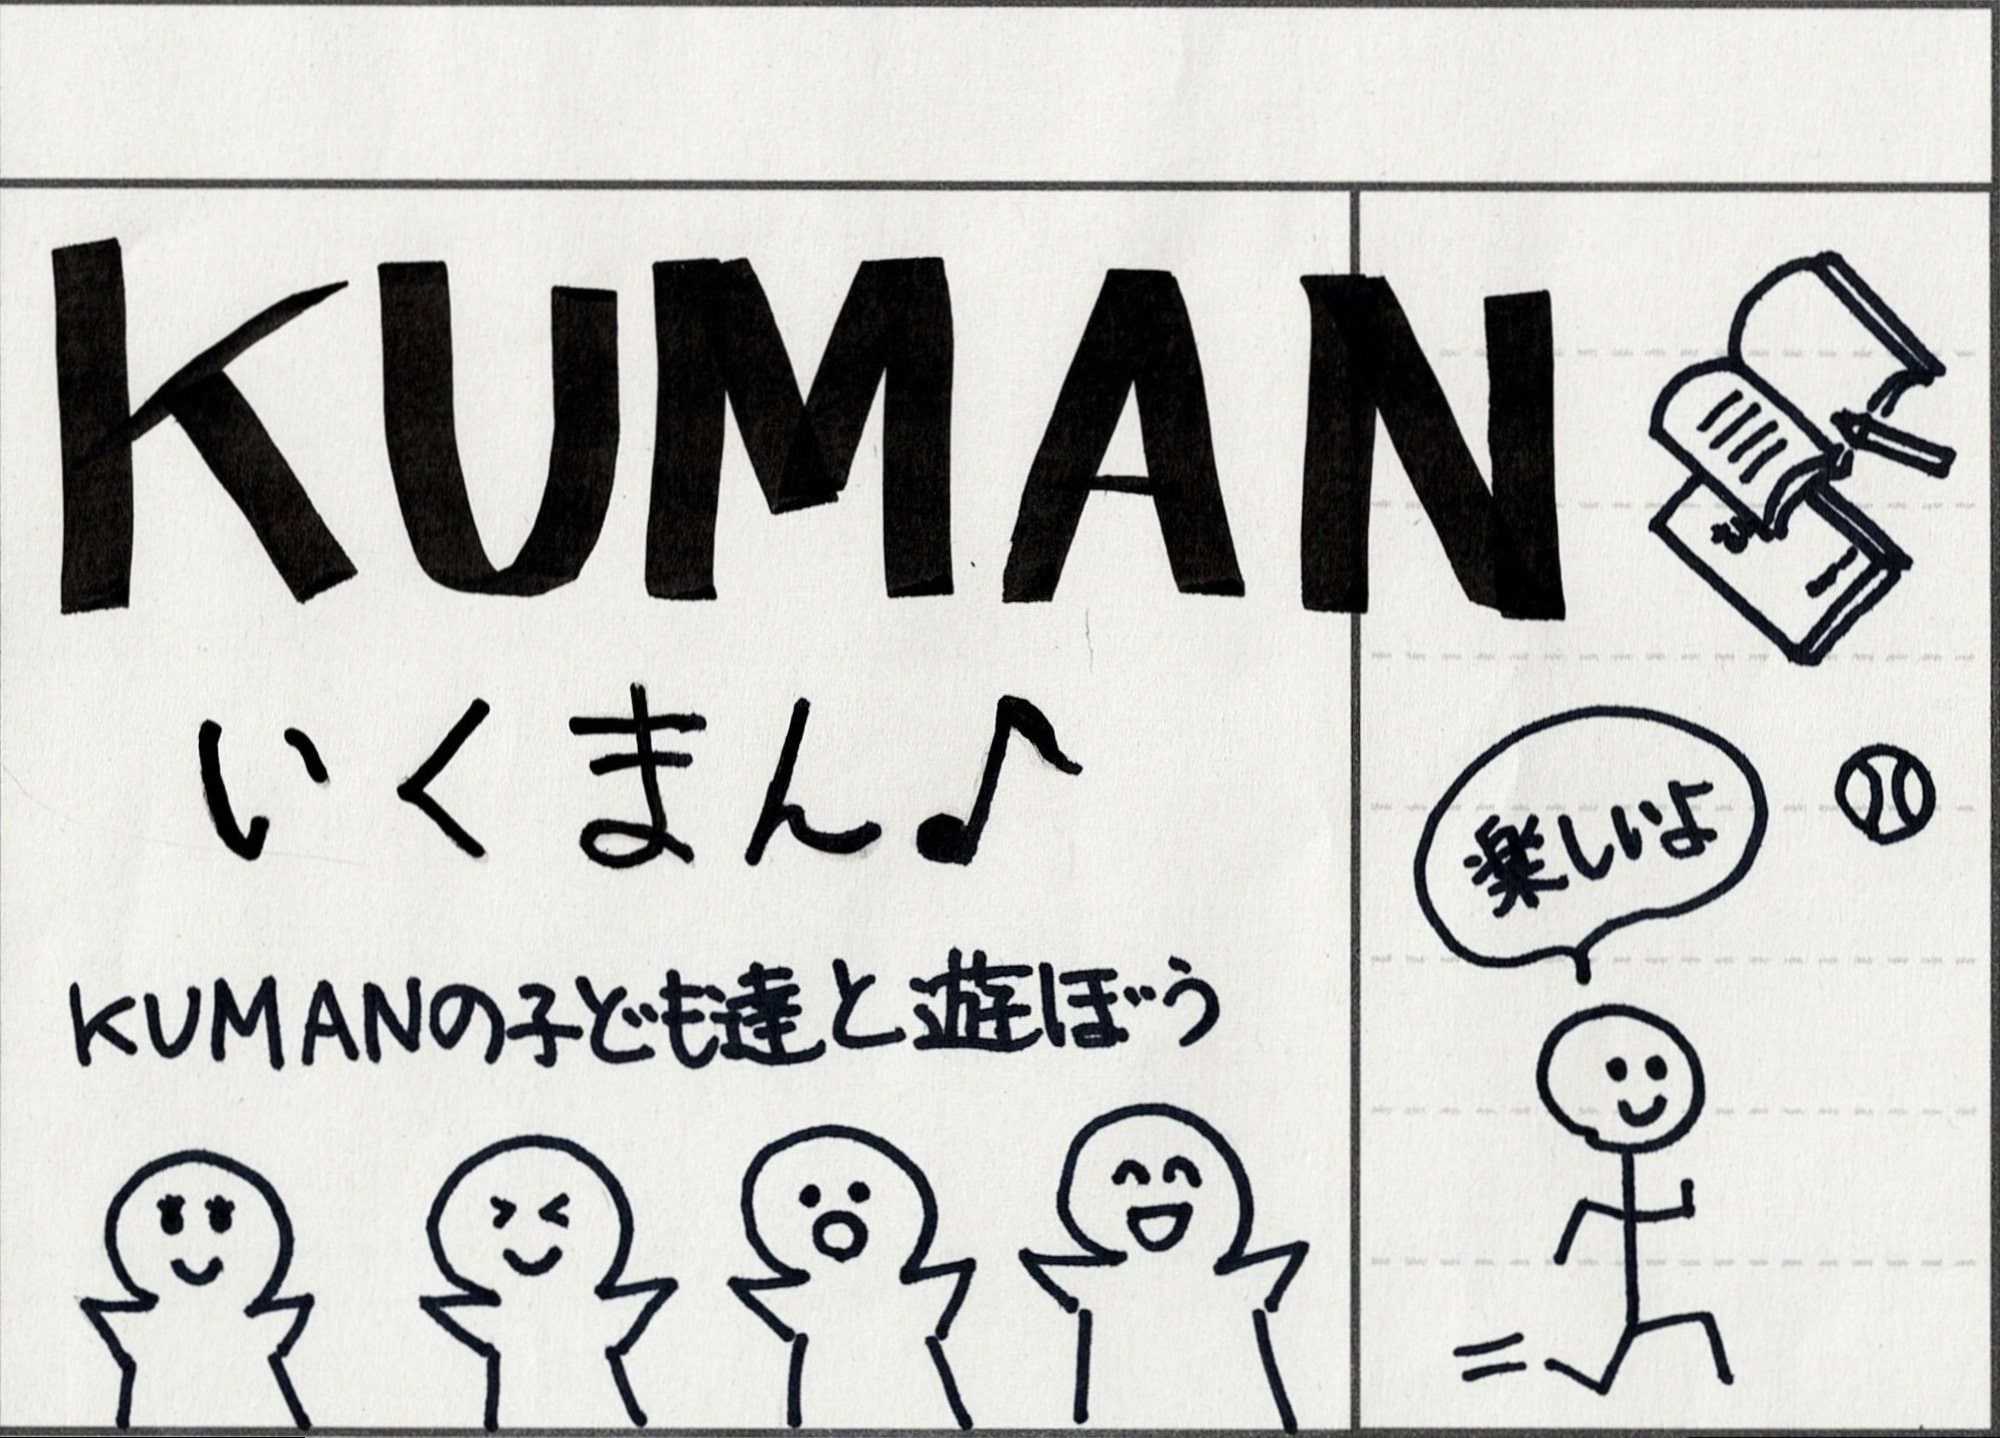 KUMAN
いくまん♪
KUMANの子ども達と遊ぼう
楽しいよ